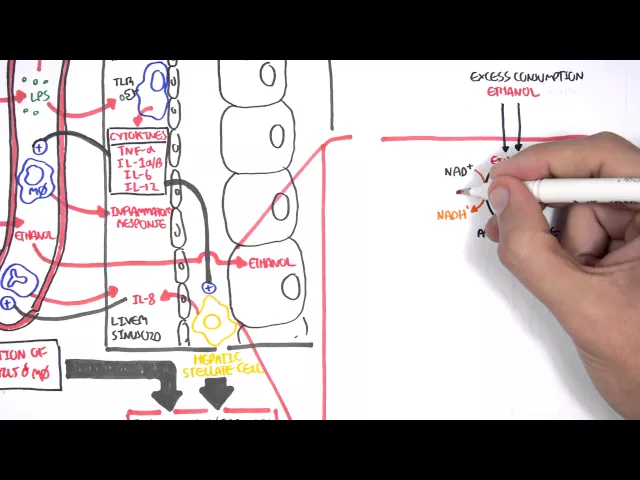 TLR
LPS
CYTOKINES
TNF-α
IL-1α/B
IL-6
IL-12
+
MØ
INFLAMMATORY
RESPONSE
ETHANOL
ETHANOL
+
+
IL-8
LIVER
SINUSOID
HEPATIC
STELLATE CELL
TION OF
MØ
EXCESS CONSUMPTION
ETHANOL
NAD+
NADH+